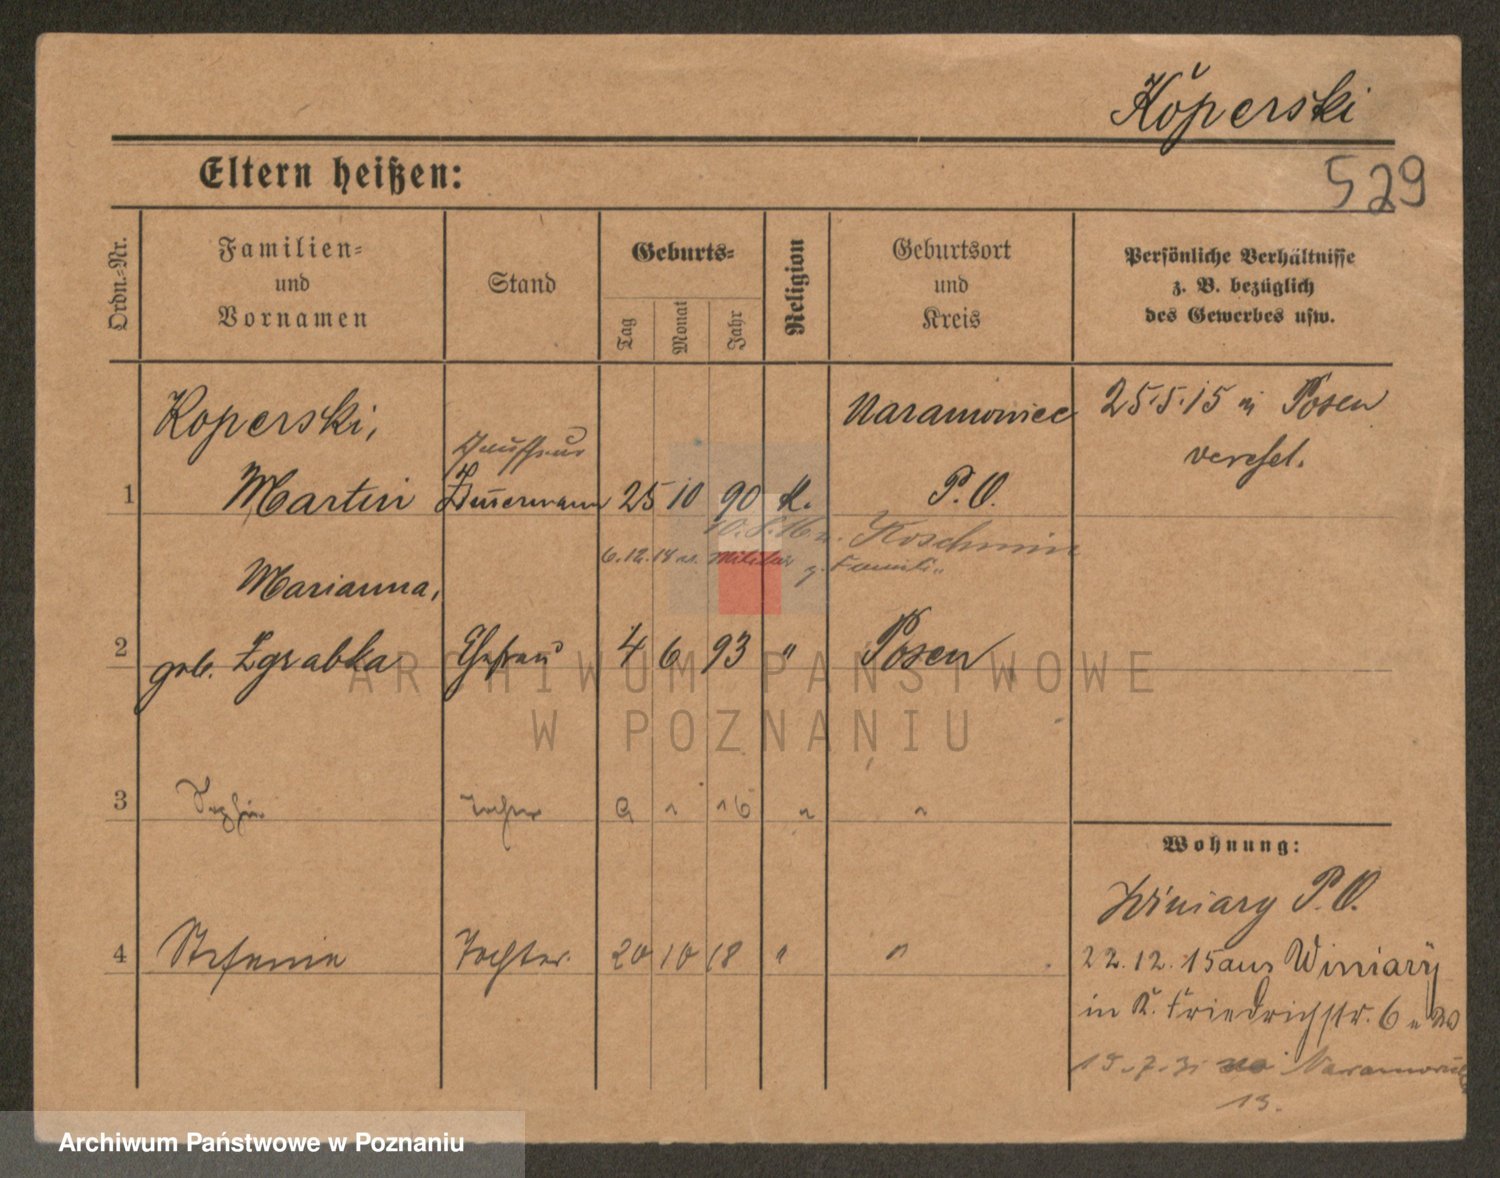 Koperski
529
Eltern heißen:
Ordn.-Nr.
Familien-
und
Vornamen
Stand
Geburts-
Tag
Monat
Jahr
Religion
Geburtsort
und
Kreis
Persönliche Verhältnisse
z. B. bezüglich
des Gewerbes usw.
Koperski,
Naramowice
25.5.15 in Posen
verehel.
1 Martin 25 10 90 k. P. O.
Koschmin
6.12.18 Militär
Marianna,
2 geb. Zgrabka Ehefrau 4 6 93 " Posen
ARCHIWUM PAŃSTWOWE
W POZNANIU
3 Tochter 9 " 16 " "
Wohnung:
Winiary P. O.
4 Stefania Tochter 20 10 18 " "
22.12.15 aus Winiary
in K. Friedrichstr. 6
15.7.31 Naramowice
13.
Archiwum Państwowe w Poznaniu